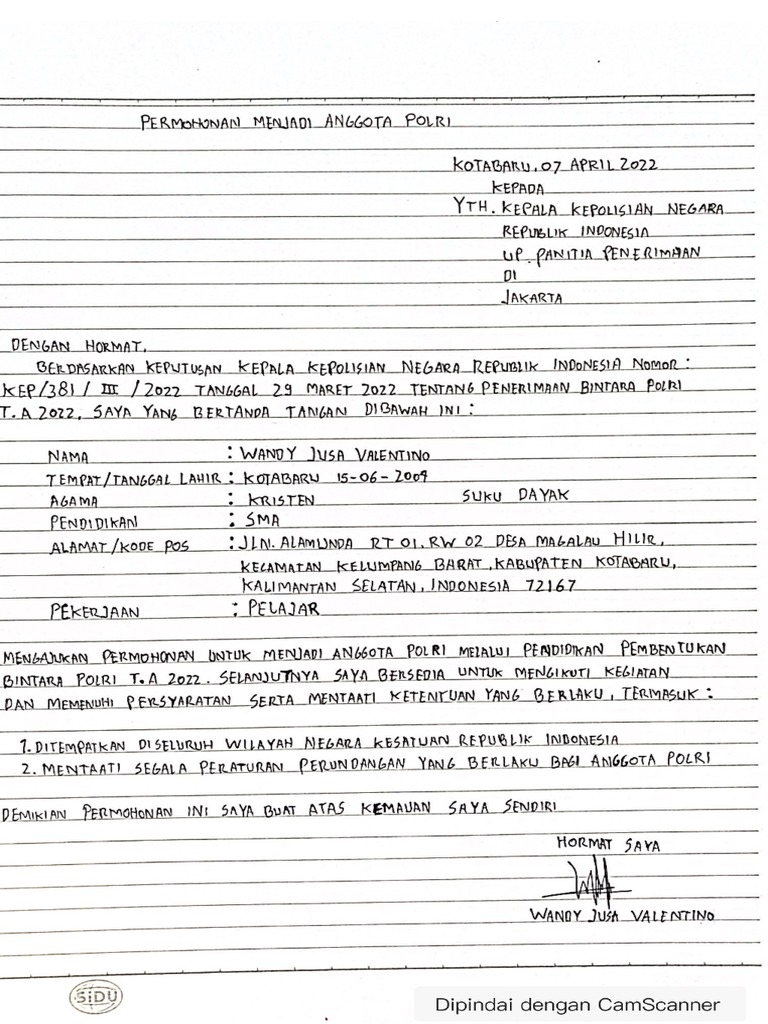 PERMOHONAN MENJADI ANGGOTA POLRI
KOTABARU, 07 APRIL 2022
KEPADA
YTH. KEPALA KEPOLISIAN NEGARA
REPUBLIK INDONESIA
UP. PANITIA PENERIMAAN
DI
JAKARTA
DENGAN HORMAT,
BERDASARKAN KEPUTUSAN KEPALA KEPOLISIAN NEGARA REPUBLIK INDONESIA NOMOR :
KEP/381/III/2022 TANGGAL 29 MARET 2022 TENTANG PENERIMAAN BINTARA POLRI
T.A 2022, SAYA YANG BERTANDA TANGAN DIBAWAH INI :
NAMA : WANDY JUSA VALENTINO
TEMPAT/TANGGAL LAHIR : KOTABARU 15-06-2004
AGAMA : KRISTEN SUKU DAYAK
PENDIDIKAN : SMA
ALAMAT/KODE POS : JLN. ALAMUNDA RT 01, RW 02 DESA MAGALAU HILIR,
KECAMATAN KELUMPANG BARAT, KABUPATEN KOTABARU,
KALIMANTAN SELATAN, INDONESIA 72167
PEKERJAAN : PELAJAR
MENGAJUKAN PERMOHONAN UNTUK MENJADI ANGGOTA POLRI MELALUI PENDIDIKAN PEMBENTUKAN
BINTARA POLRI T.A 2022. SELANJUTNYA SAYA BERSEDIA UNTUK MENGIKUTI KEGIATAN
DAN MEMENUHI PERSYARATAN SERTA MENTAATI KETENTUAN YANG BERLAKU, TERMASUK :
1. DITEMPATKAN DISELURUH WILAYAH NEGARA KESATUAN REPUBLIK INDONESIA
2. MENTAATI SEGALA PERATURAN PERUNDANGAN YANG BERLAKU BAGI ANGGOTA POLRI
DEMIKIAN PERMOHONAN INI SAYA BUAT ATAS KEMAUAN SAYA SENDIRI
HORMAT SAYA
WANDY JUSA VALENTINO
SiDU
Dipindai dengan CamScanner